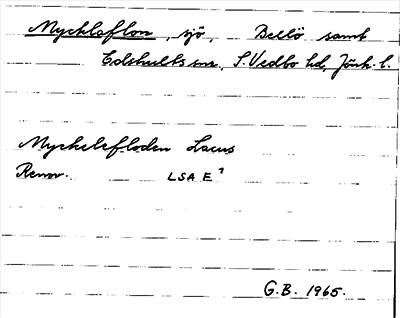 Mycklaflon, sjö, Bellö samt
Edshults snr, S. Vedbo hd, Jönk. l.
Myckelefloden Lacus
Renov. LSA E 1
G.B. 1965.